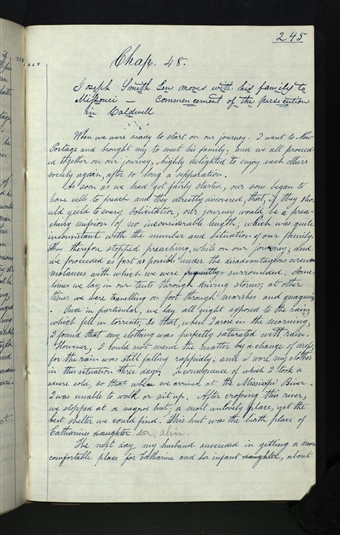 245
Chap. 48.
Joseph Smith Sen moves with his family to
Missouri — Commencement of the persecution
in Caldwell
When we were ready to start on our journey. I went to New
Portage and brought my to meet his family; and we all proceed
ed together on our journey, highly delighted to enjoy each others
society again, after so long a separation.
As soon as we had got fairly started, our sons began to
have calls to preach and they directly discovered, that, if they sho
uld yield to every solicitation, our journey would be a prea
ching mission of no inconsiderable length, which was quite
inconsistent with the number and situation of our family.
They therefore stopped preaching, while on our journey; and
we proceeded as fast as possible under the disadvantageous circum
mstances with which we were frequently surrounded, Some
times we lay in our tents through driving storms; at other
times we were travelling on foot through marshes and quagmires
Once in particular, we lay all night exposed to the rain,
which fell in torrents; so that, when I arose in the morning,
I found that my clothing was perfectly saturated with rain.
However, I could not mend the matter by a change of dress,
for the rain was still falling rappidly; and I wore my clothes
in this situation three days. In consequence of which I took a
severe cold, so that when we arrived at the Missisipi River.
I was unable to walk or sit up. After crossing this river,
we stopped at a negroes hut; a most unlovely place, yet the
best shelter we could find. This hut was the birth place of
Catharines daughter son, alvin.
The next day, my husband succeeded in getting a more
comfortable place for Catharine and her infant daughter, about